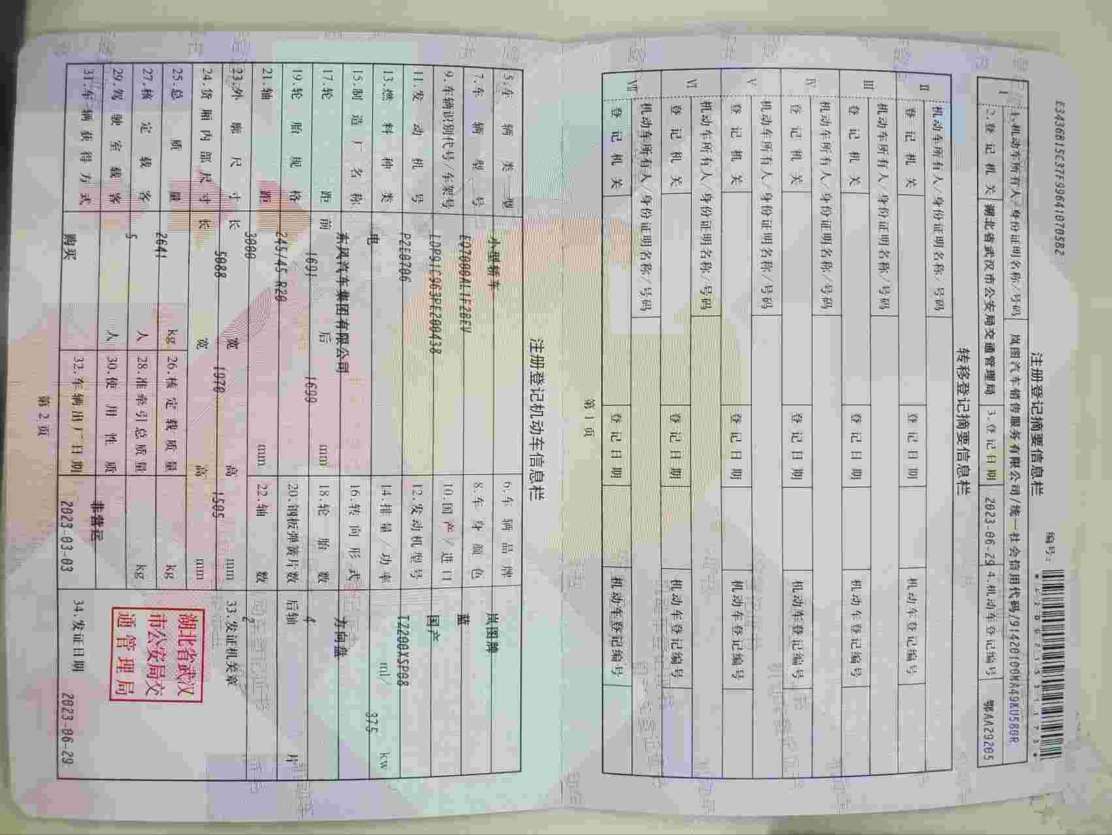 注册登记摘要信息栏
1.机动车所有人/身份证明名称/号码 岚图汽车销售服务有限公司/统一社会信用代码/91420100MA49KU580R
I 2.登记机关 湖北省武汉市公安局交通管理局 3.登记日期 2023-06-29 4.机动车登记编号 鄂AA29205
转移登记摘要信息栏
II 机动车所有人/身份证明名称/号码
登记机关 登记日期 机动车登记编号
III 机动车所有人/身份证明名称/号码
登记机关 登记日期 机动车登记编号
IV 机动车所有人/身份证明名称/号码
登记机关 登记日期 机动车登记编号
V 机动车所有人/身份证明名称/号码
登记机关 登记日期 机动车登记编号
VI 机动车所有人/身份证明名称/号码
登记机关 登记日期 机动车登记编号
VII 机动车所有人/身份证明名称/号码
登记机关 登记日期 机动车登记编号
第1页
注册登记机动车信息栏
5.车辆类型 小型轿车 6.车辆品牌 岚图牌
7.车辆型号 8.车身颜色 蓝
9.车辆识别代号/车架号 LDP91C963PE200438 10.国产/进口 国产
11.发动机号 PZE0706 12.发动机型号 TZ200XSP08
13.燃料种类 电 14.排量/功率 ml/ 375 kw
15.制造厂名称 东风汽车集团有限公司 16.转向形式 方向盘
17.轮距 前 1691 后 1699 mm 18.轮胎数 4
19.轮胎规格 245/45 R20 20.钢板弹簧片数 后轴 片
21.轴距 3000 mm 22.轴数 2
23.外廓尺寸 长 5088 宽 1970 高 1505 mm 33.发证机关章
24.货厢内部尺寸 长 宽 高 mm
25.总质量 2641 kg 26.核定载质量 kg
27.核定载客 5 人 28.准牵引总质量 kg
29.驾驶室载客 人 30.使用性质 非营运
31.车辆获得方式 购买 32.车辆出厂日期 2023-03-03 34.发证日期 2023-06-29
湖北省武汉
市公安局交
通管理局
第2页
编号: